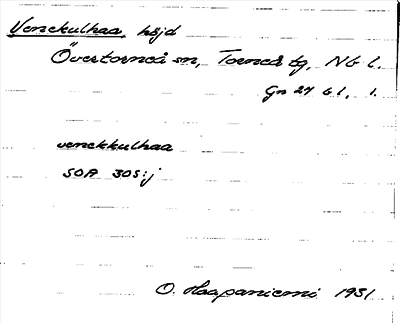 Venekulhaa, höjd
Övertorneå sn, Torneå tg, Nb l.
Gn 27 b l, 1.
venekkulhaa
SOA 305:j
O. Haapaniemi 1931